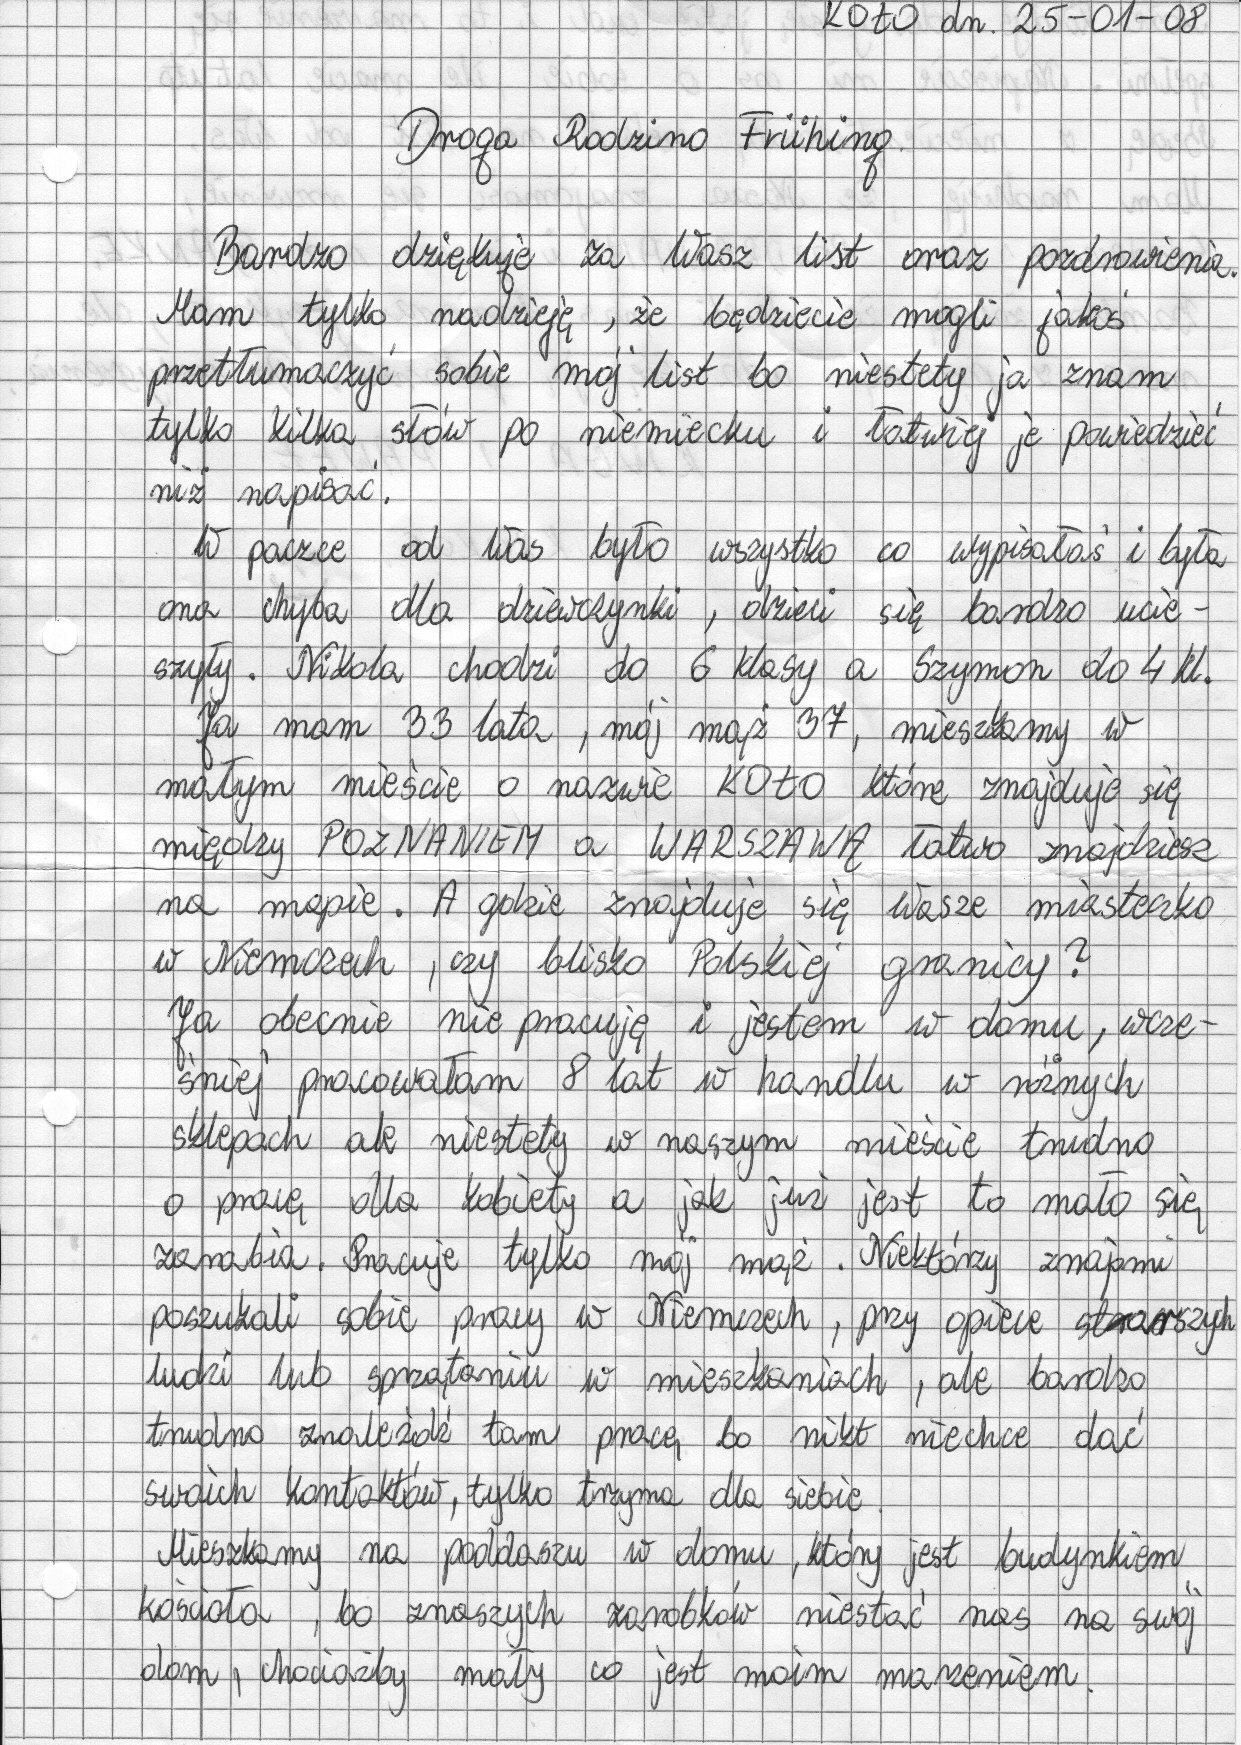 KOŁO dn. 25-01-08
Droga Rodzino Frühing.
Bardzo dziękuje za Wasz list oraz pozdrowienia.
Mam tylko nadzieję, że będziecie mogli jakoś
przetłumaczyć sobie mój list bo niestety ja znam
tylko kilka słów po niemiecku i łatwiej je powiedzieć
niż napisać.
W paczce od Was było wszystko co wypisałaś i była
ona chyba dla dziewczynki, dzieci się bardzo ucie-
szyły. Nikola chodzi do 6 klasy a Szymon do 4 kl.
Ja mam 33 lata, mój mąż 37, mieszkamy w
małym mieście o nazwie KOŁO które znajduje się
między POZNANIEM a WARSZAWĄ łatwo znajdziesz
na mapie. A gdzie znajduje się Wasze miasteczko
w Niemczech, czy blisko Polskiej granicy?
Ja obecnie nie pracuję i jestem w domu, wcze-
śniej pracowałam 8 lat w handlu w różnych
sklepach ale niestety w naszym mieście trudno
o pracę dla kobiety a jak już jest to mało się
zarabia. Pracuje tylko mój mąż. Niektórzy znajomi
poszukali sobie pracy w Niemczech, przy opiece starszych
ludzi lub sprzątaniu w mieszkaniach, ale bardzo
trudno znaleźdź tam pracę bo nikt niechce dać
swoich kontaktów, tylko trzyma dla siebie.
Mieszkamy na poddaszu w domu, który jest budynkiem
kościoła, bo znaszych zarobków niestać nas na swój
dom, chociażby mały co jest moim marzeniem.